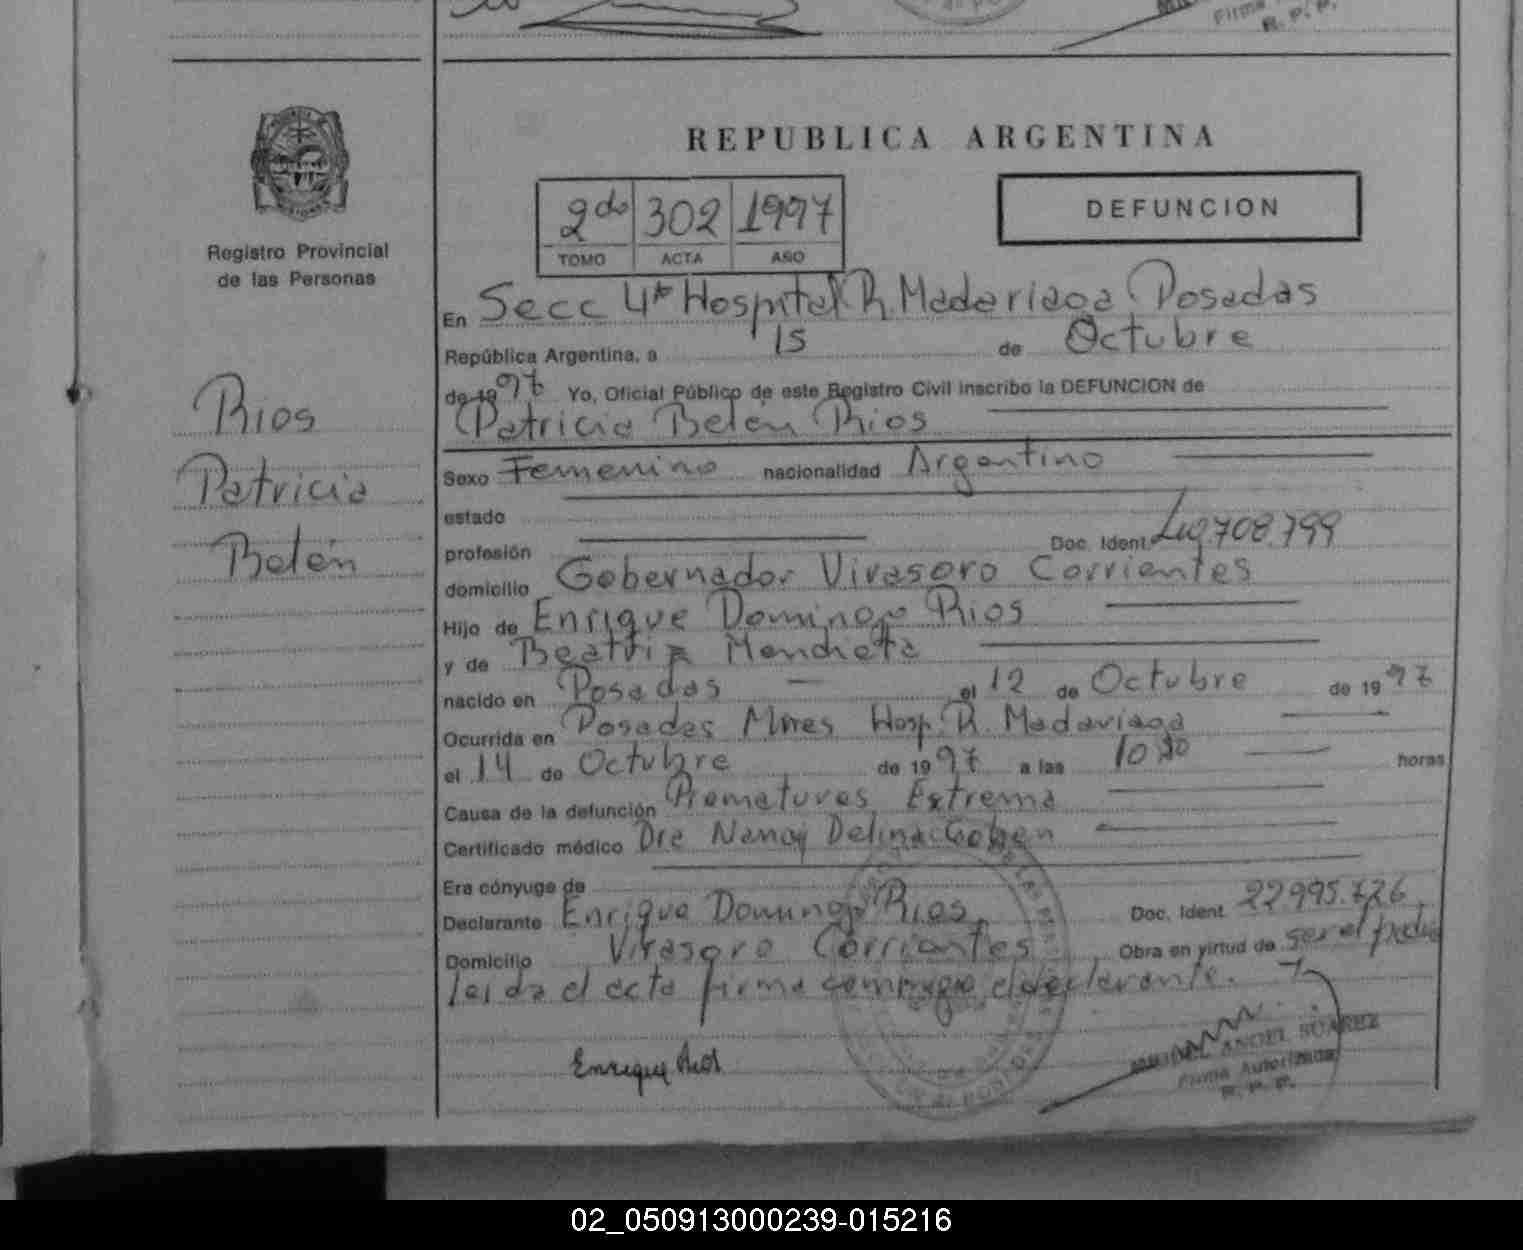 Firma
R. P. P.
REPUBLICA ARGENTINA
2do 302 1997
TOMO ACTA AÑO
DEFUNCION
Registro Provincial
de las Personas
Rios
Patricia
Belén
En Secc 4ta Hospital R. Madariaga Posadas
República Argentina, a 15 de Octubre
de 1997 Yo, Oficial Público de este Registro Civil inscribo la DEFUNCION de
Patricia Belén Rios
Sexo Femenino nacionalidad Argentino
estado
profesión Doc. Ident. 708.799
domicilio Gobernador Virasoro Corrientes
Hijo de Enrique Domingo Rios
y de Beatriz Mendieta
nacido en Posadas el 12 de Octubre de 1997
Ocurrida en Posadas Mnes Hosp. R. Madariaga
el 14 de Octubre de 1997 a las 10 horas
Causa de la defunción Prematurez Extrema
Certificado médico Dra Nancy Delina
Era cónyuge de
Declarante Enrique Domingo Rios. Doc. Ident. 22.995.726.
Domicilio Virasoro Corrientes Obra en virtud de ser el padre
leida el acta firma conmigo el declarante.
Enrique Rios
MIGUEL ANGEL SUAREZ
Firma Autorizada
R. P. P.
02_050913000239-015216